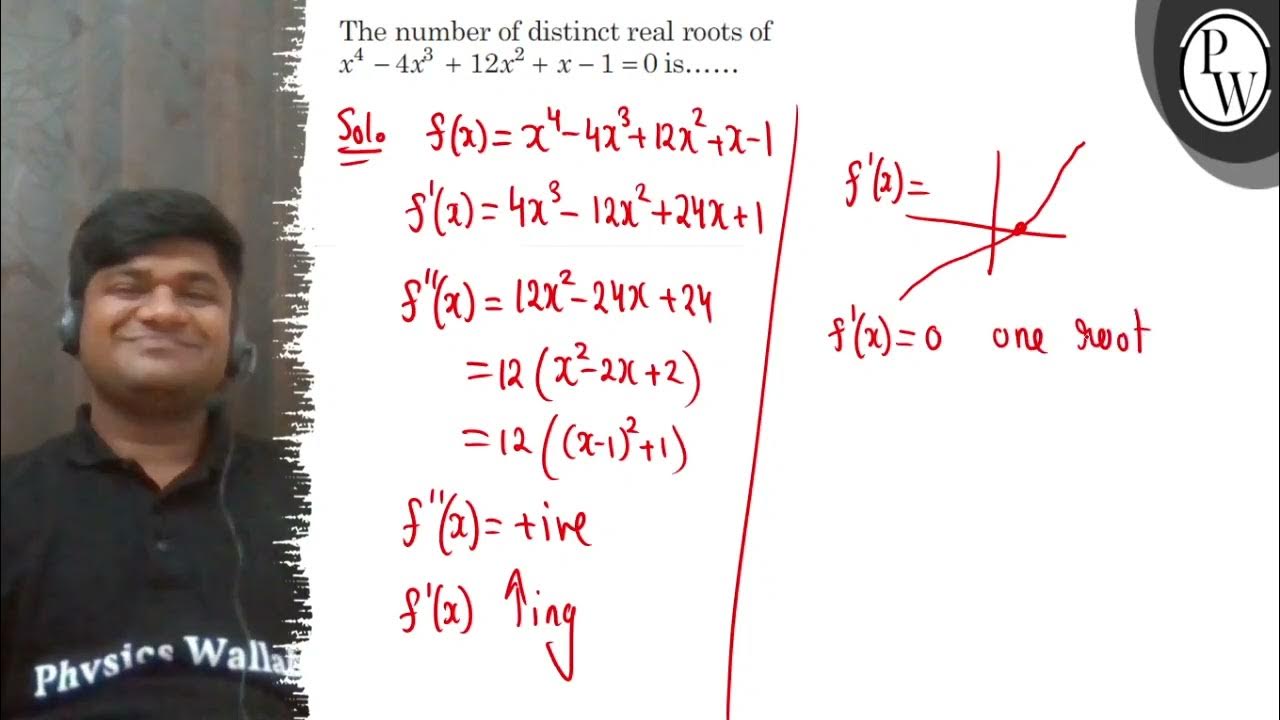 The number of distinct real roots of
x⁴ − 4x³ + 12x² + x − 1 = 0 is......
Sol. f(x) = x⁴ − 4x³ + 12x² + x − 1
f'(x) = 4x³ − 12x² + 24x + 1
f''(x) = 12x² − 24x + 24
= 12(x² − 2x + 2)
= 12((x−1)² + 1)
f''(x) = +ive
f'(x) ↑ing
f'(x) =
f'(x) = 0 one root
PW
Physics Wallah